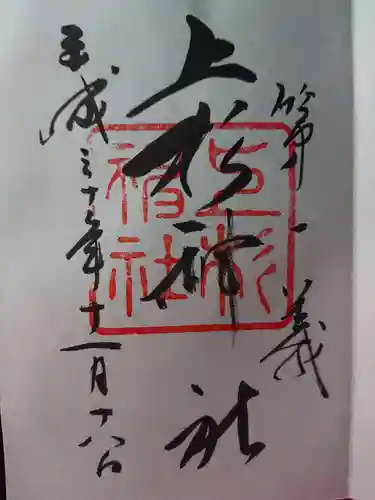 第一義
上杉神社
平成三十年十一月十八日
上杉
神社